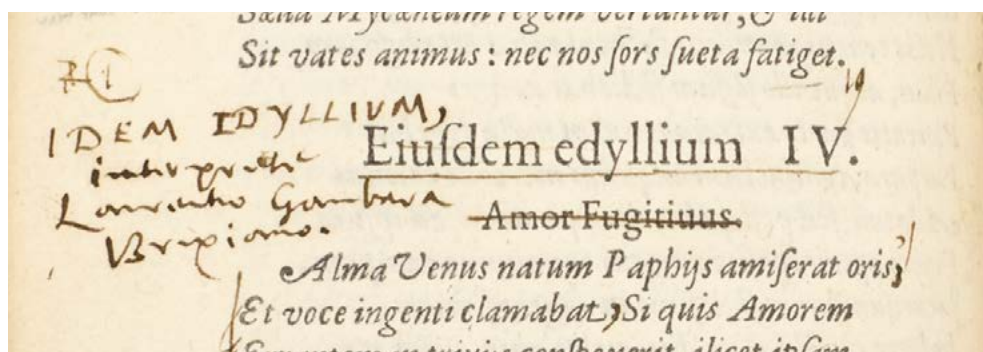 Sit vates animus: nec nos ſors ſueta fatiget.
IDEM IDYLLIVM,
interprete
Laurentio Gambara
Brixiano.
Eiuſdem edyllium IV.
Amor Fugitiuus.
Alma Venus natum Paphijs amiſerat oris,
Et voce ingenti clamabat, Si quis Amorem